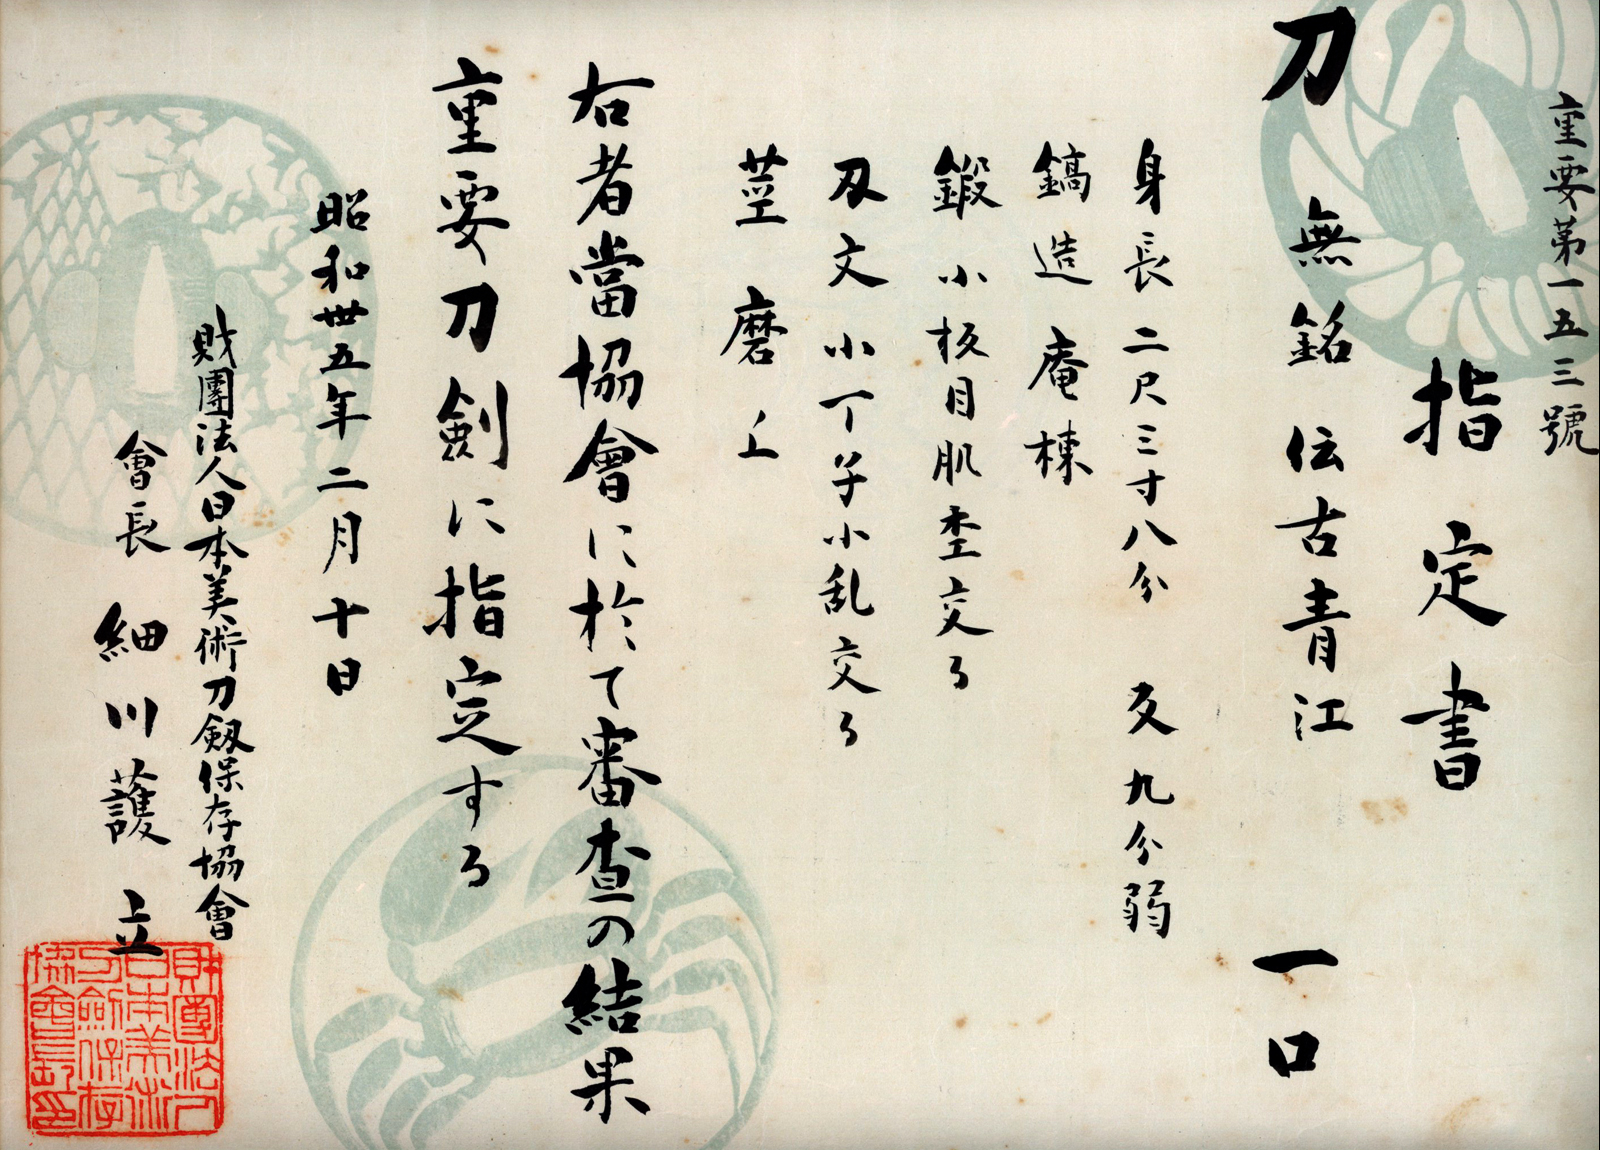 重要第一五三號
指定書
刀 無銘 伝古青江 一口
身長 二尺三寸八分 反 九分弱
鎬造 庵棟
鍛 小板目肌杢交る
刃文 小丁子小乱交る
茎 磨上
右者當協會に於て審査の結果
重要刀劍に指定する
昭和丗五年二月十日
財團法人日本美術刀剱保存協會
會長 細川護立
財團法人
日本美術
刀劍保存
協會長印